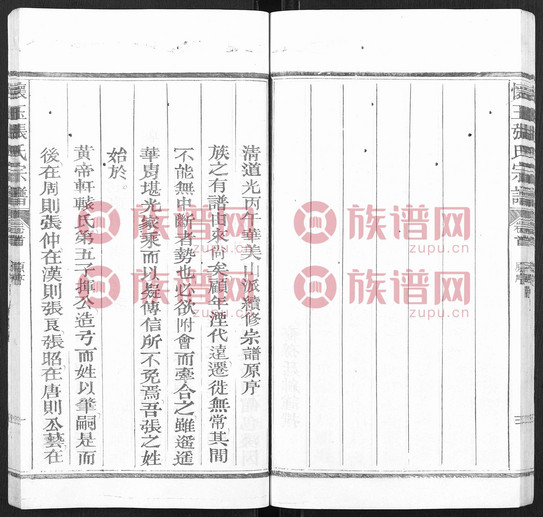 懷玉張氏宗譜
卷首
原序
清道光丙午華美山派續修宗譜原序
族之有譜由來尙矣顧年湮代遠遷徙無常其間
不能無中斷者勢也必欲附會而牽合之雖遙遙
華胄堪光家乘而以疑傳信所不免焉吾張之姓
始於
黃帝軒轅氏第五子揮公造弓而姓以肇嗣是而
後在周則張仲在漢則張良張昭在唐則公藝在
懷玉張氏宗譜
卷首
原序
族谱网
zupu.cn
族谱网
zupu.cn
族谱网
zupu.cn
族谱网
zupu.cn